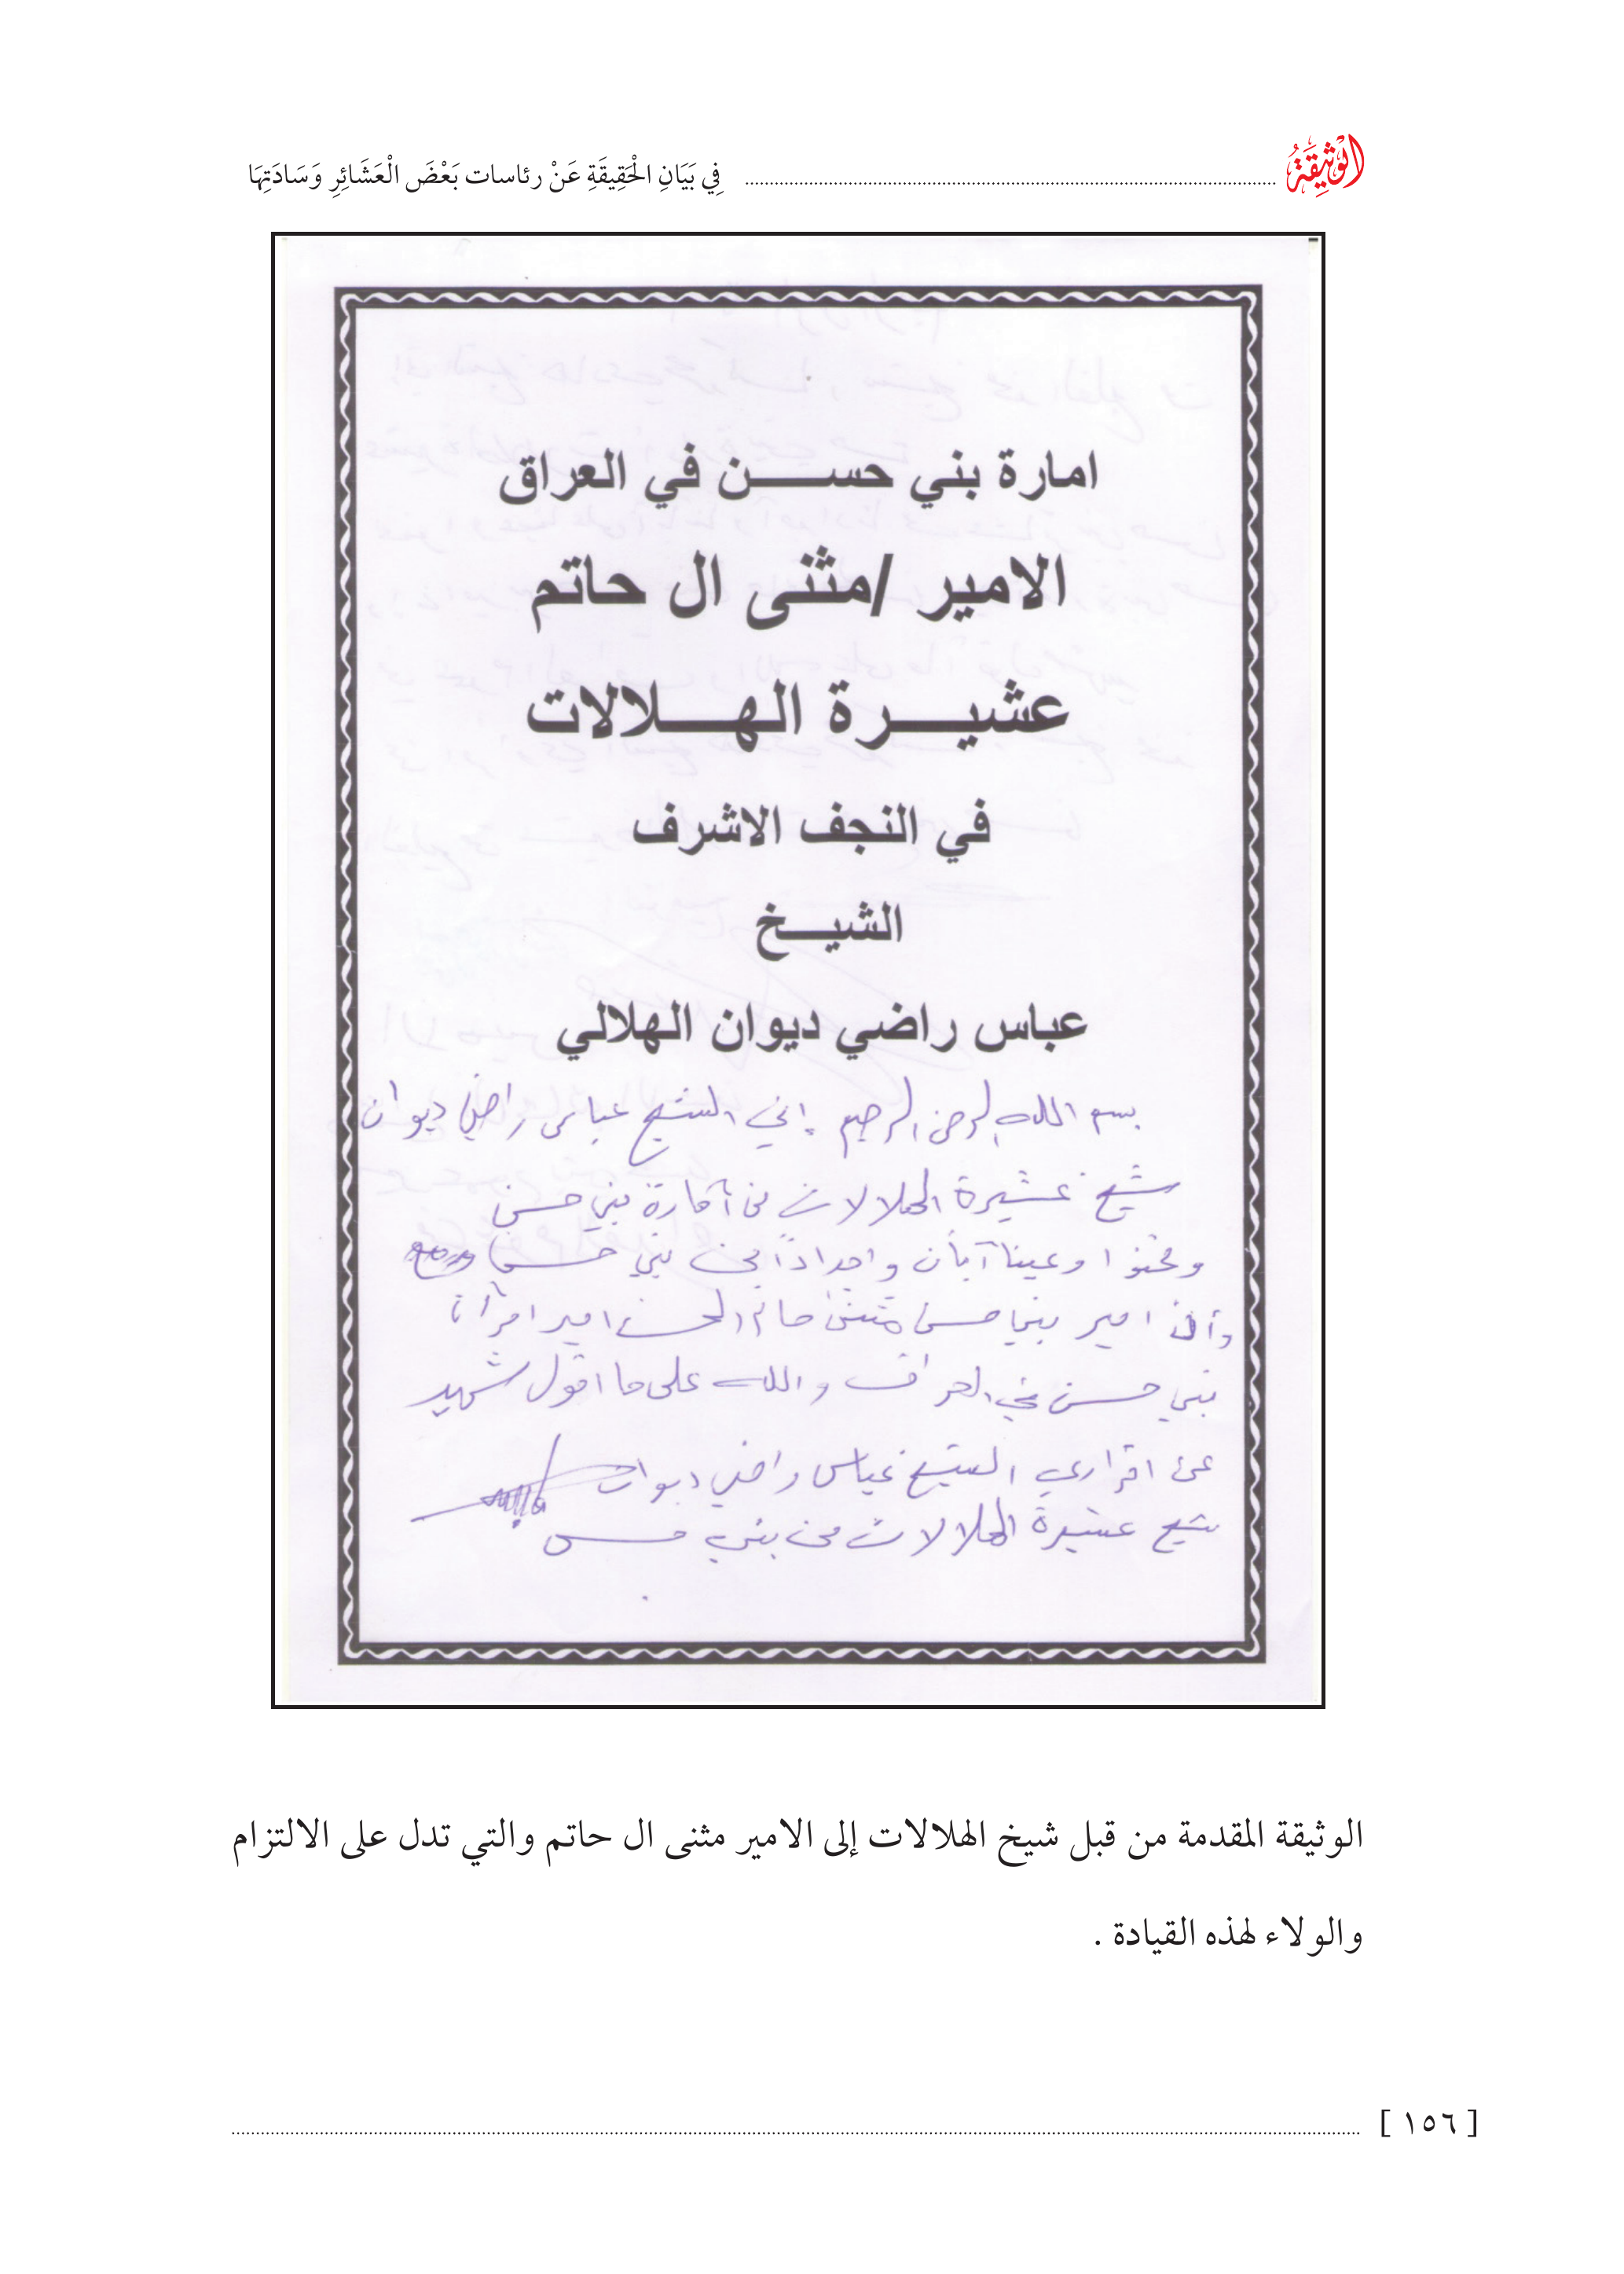 الْوَثِيقَةُ فِي بَيَانِ الْحَقِيقَةِ عَنْ رئاسات بَعْضَ الْعَشَائِرِ وَسَادَتِهَا
امارة بني حســـن في العراق
الامير /مثنى ال حاتم
عشيـــرة الهـــلالات
في النجف الاشرف
الشيـــخ
عباس راضي ديوان الهلالي
بسم الله الرحمن الرحيم إني الشيخ عباس راضي ديوان
شيخ عشيرة الهلالات من أمارة بني حسن
ونحنوا وعينا آبأن واجداداً من بني حسن
وأن امير بني حسن مثنى حاتم الحسن امير
بني حسن في العراق والله على ما اقول شهيد
عن اقراري الشيخ عباس راضي ديوان
شيخ عشيرة الهلالات من بني حسن
الوثيقة المقدمة من قبل شيخ الهلالات إلى الامير مثنى ال حاتم والتي تدل على الالتزام
والولاء لهذه القيادة .
[ ١٥٦ ]